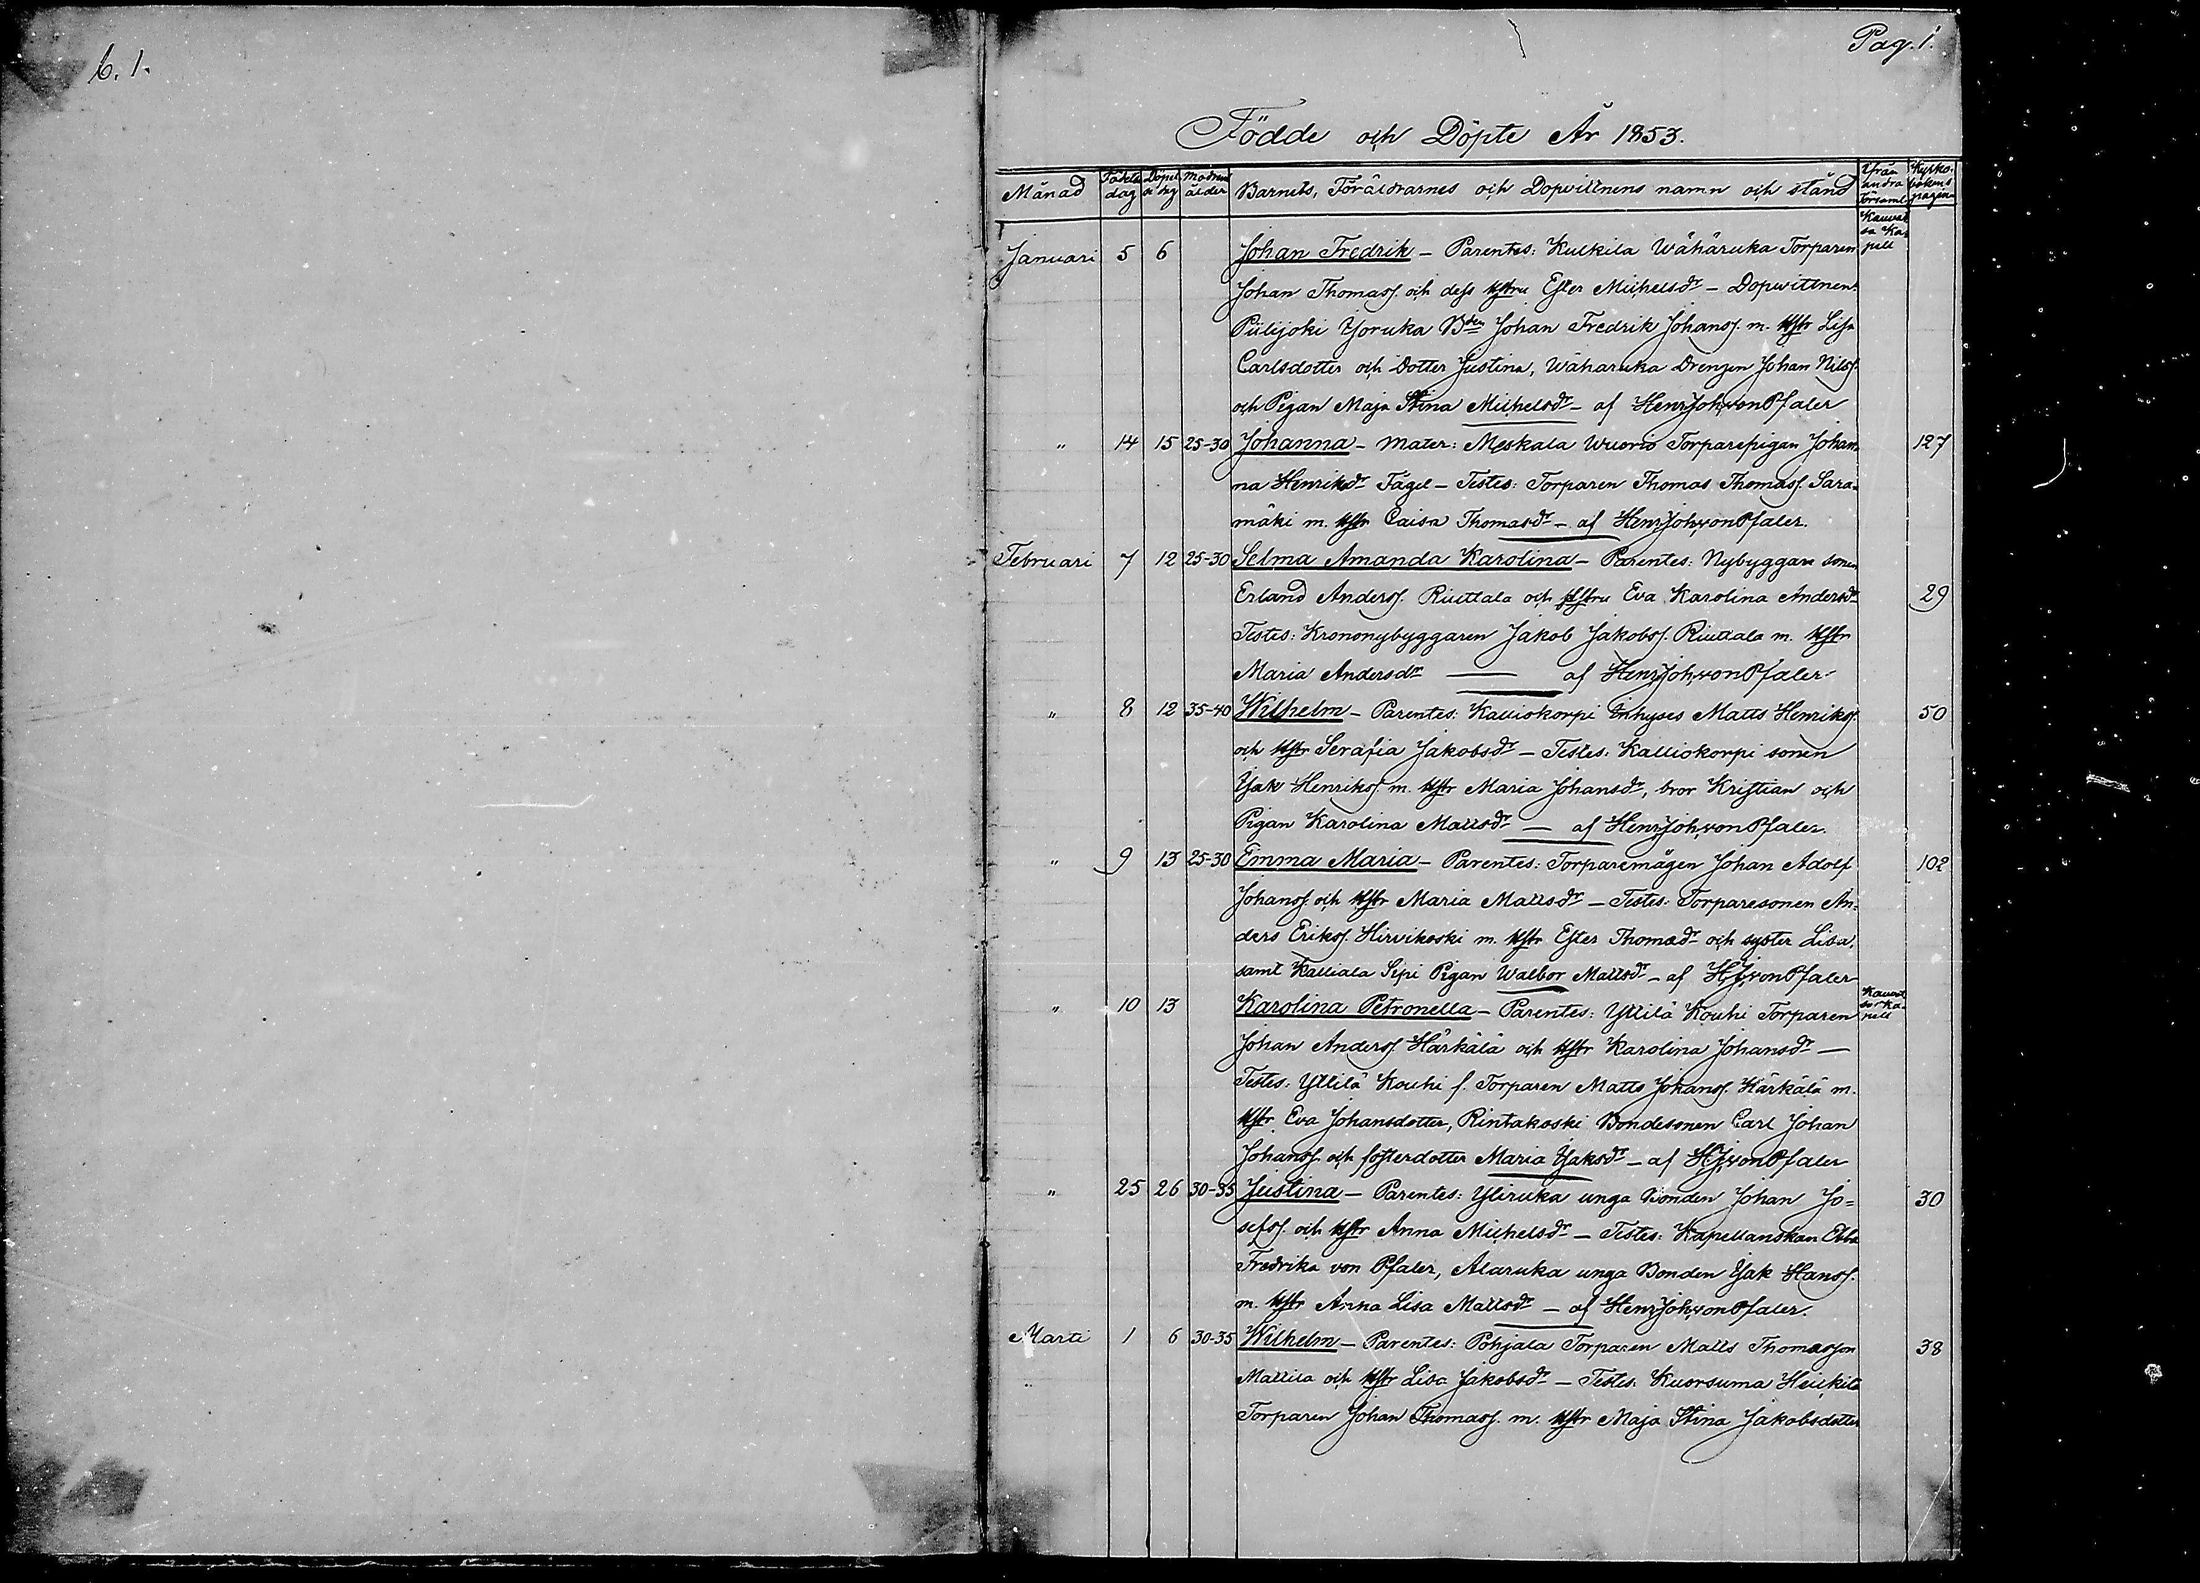 b. 1.
Pag. 1.
Födde och Döpte År 1853.
Månad Födelsedag Döpelsedag Modrens ålder Barnets, Föräldrarnes och Dopvittnens namn och stånd Ifrån andra Församl. Kyrkobokens pagina
Kauvatsa Kapell
Januari 5 6 Johan Fredrik – Parentes: Kulkila Wähäruka Torparen
Johan Thomass. och dess hstru Ester Michelsdr – Dopwittnen:
Piilijoki Yoruka Bden Johan Fredrik Johanss. m. hstr Lisa
Carlsdotter och Dotter Justina, Wäharuka Drengen Johan Nilss.
och Pigan Maja Stina Michelsdr – af HenrJohvonPfaler
" 14 15 25-30 Johanna – Mater: Meskala Wuorio Torparepigan Johan= 127
na Henriksdr Fägel – Testes: Torparen Thomas Thomass. Sara=
mäki m. hstr Caisa Thomasdr – af HenrJohvonPfaler.
Februari 7 12 25-30 Selma Amanda Karolina – Parentes: Nybyggare sonen
Erland Anderss. Riuttala och hstru Eva Karolina Andersdr 29
Testes: Krononybyggaren Jakob Jakobss. Riuttala m. hstr
Maria Andersdr — af HenrJohvonPfaler
" 8 12 35-40 Wilhelm – Parentes: Kalliokorpi Inhyses Matts Henrikss. 50
och hstr Serafia Jakobsdr – Testes: Kalliokorpi sonen
Isak Henrikss. m. hstr Maria Johansdr, bror Kristian och
Pigan Karolina Mattsdr – af HenrJohvonPfaler.
" 9 13 25-30 Emma Maria – Parentes: Torparemågen Johan Adolf 102
Johanss. och hstr Maria Mattsdr – Testes: Torparesonen An=
ders Erikss. Hirvikoski m. hstr Ester Thomadr och syster Lisa,
samt Kalliala Sipi Pigan Walbor Mattsdr – af HJvonPfaler
Kauvatsa Kapell
" 10 13 Karolina Petronella – Parentes: Yttilä Kouhi Torparen
Johan Anderss. Härkälä och hstr Karolina Johansdr –
Testes: Yttilä Kouhi f. Torparen Matts Johanss. Härkälä m.
hstr Eva Johansdotter, Rintakoski Bondesonen Carl Johan
Johanss. och fosterdotter Maria Isaksdr – af HJvonPfaler
" 25 26 30-35 Justina – Parentes: Yliruka unga Bonden Johan Jo= 30
sefss. och hstr Anna Michelsdr – Testes: Kapellanskan Ebba
Fredrika von Pfaler, Alaruka unga Bonden Isak Hanss.
m. hstr Anna Lisa Mattsdr – af HenrJohvonPfaler.
Marti 1 6 30-35 Wilhelm – Parentes: Pohjala Torparen Matts Thomasson 38
Mattila och hstr Lisa Jakobsdr – Testes: Kuorsuma Heickilä
Torparen Johan Thomass. m. hstr Maja Stina Jakobsdotter